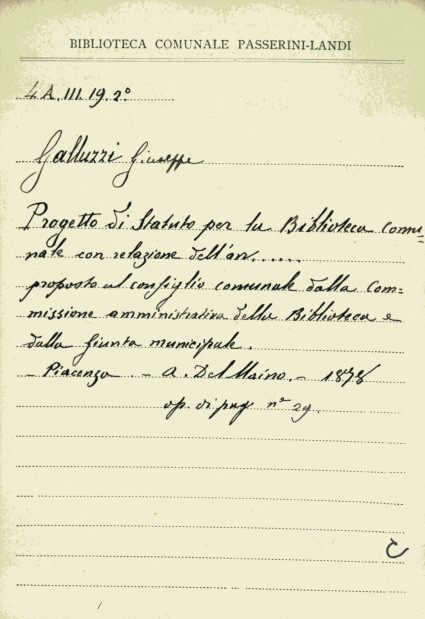 BIBLIOTECA COMUNALE PASSERINI-LANDI
4 A. III. 19. 2°
Galluzzi Giuseppe
Progetto di Statuto per la Biblioteca comu=
nale con relazione dell'av......
proposto al consiglio comunale dalla Com=
missione amministrativa della Biblioteca e
dalla Giunta municipale.
- Piacenza - A. Del Maino. - 1878
op. di pag n° 29.
C